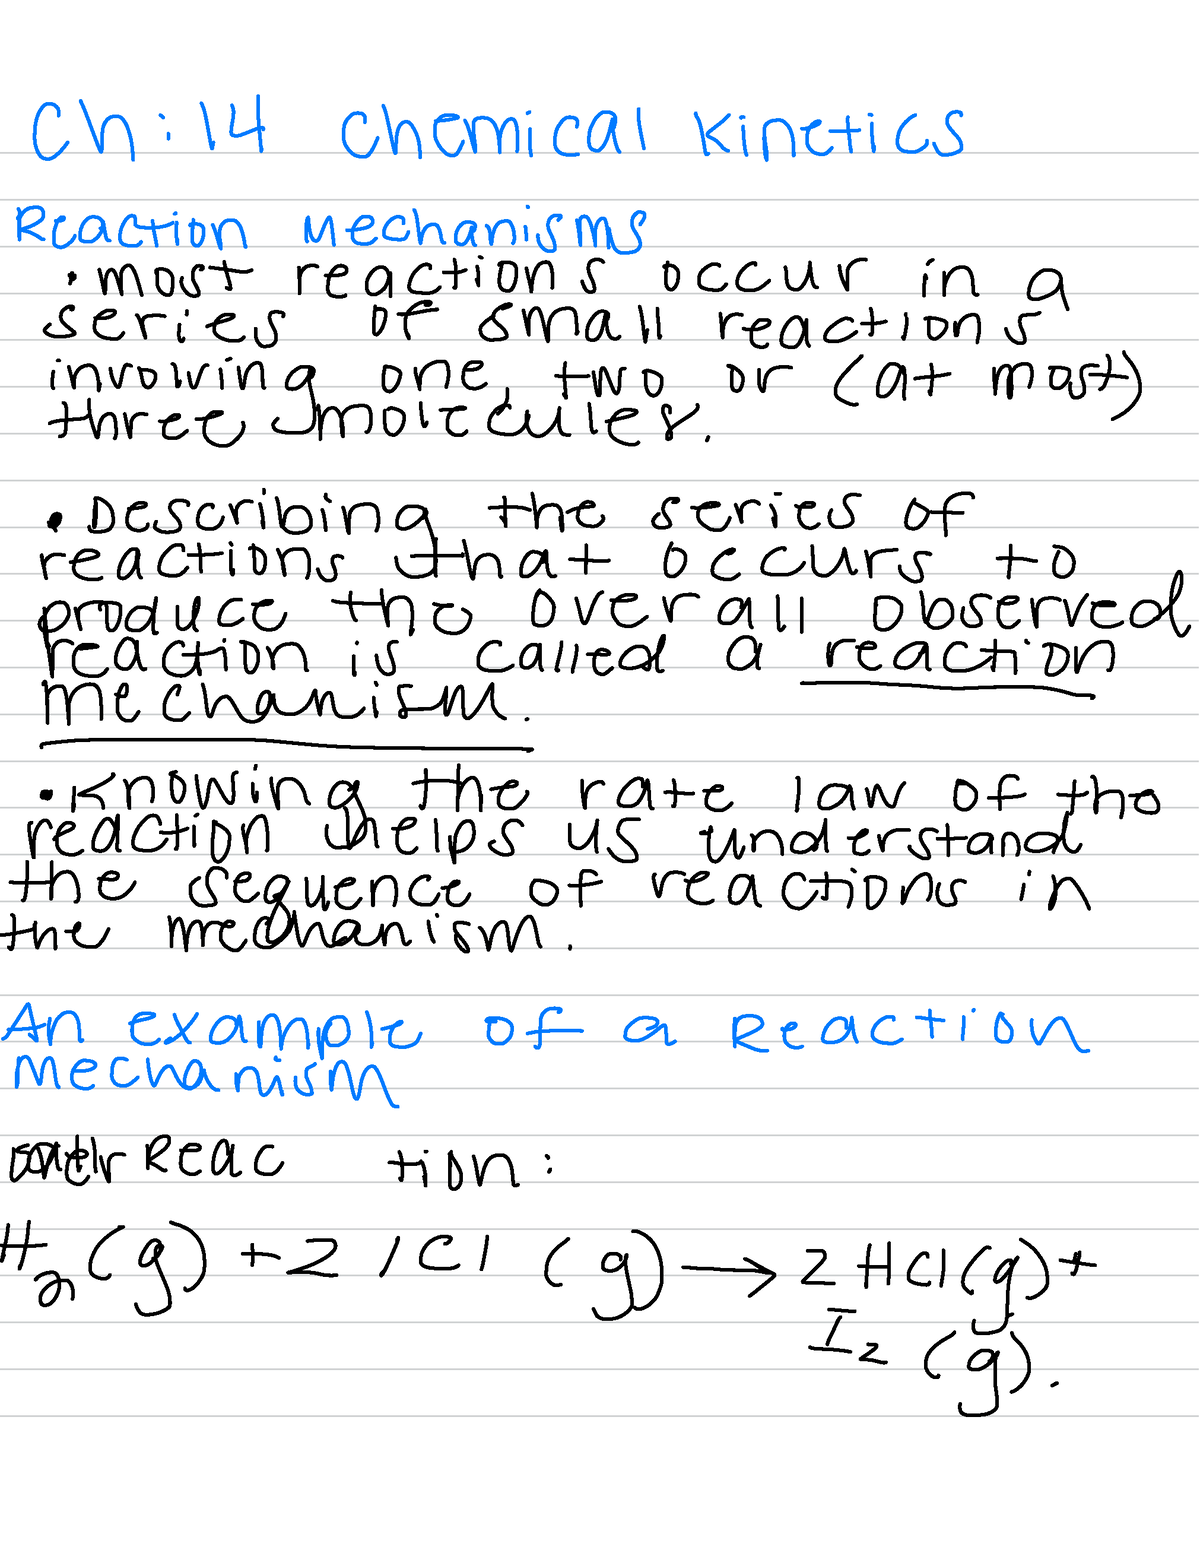 Ch: 14 Chemical Kinetics
Reaction Mechanisms
• most reactions occur in a
series of small reactions
involving one, two or (at most)
three molecules.
• Describing the series of
reactions that occurs to
produce the overall observed
reaction is called a reaction
mechanism.
• Knowing the rate law of the
reaction helps us understand
the sequence of reactions in
the mechanism.
An example of a Reaction
Mechanism
Reaction:
H₂(g) + 2 ICl (g) → 2 HCl(g) +
I₂ (g).